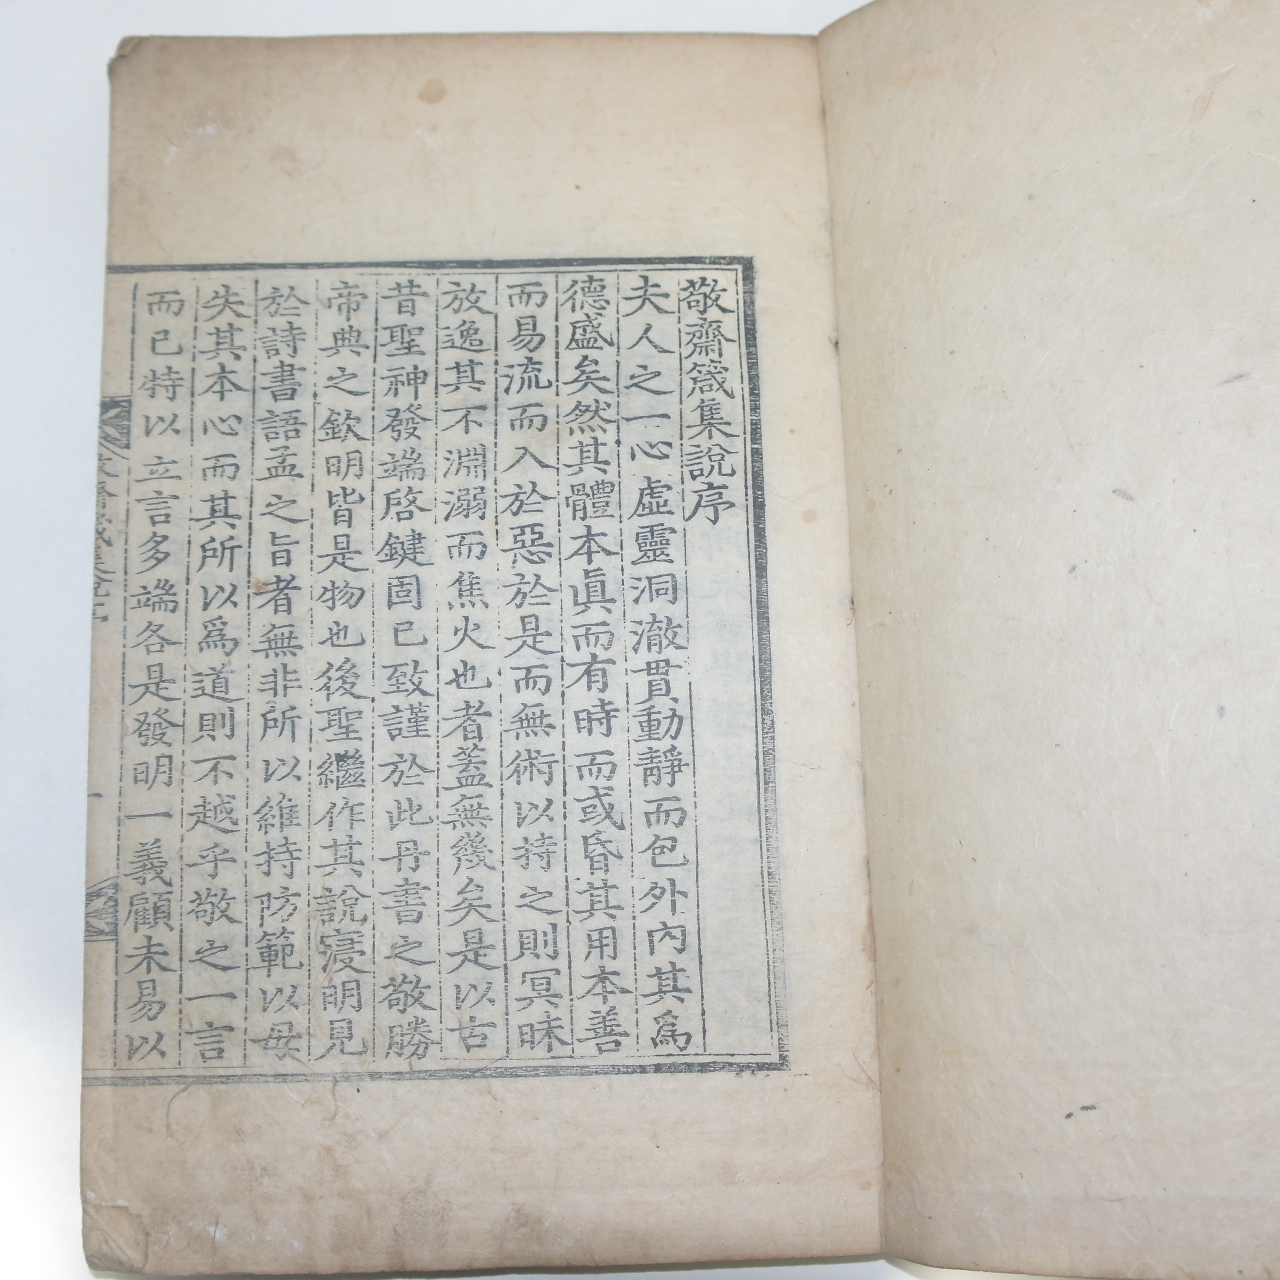 敬齋箴集說序
夫人之一心虛靈洞澈貫動靜而包外內其爲
德盛矣然其體本眞而有時而或昏其用本善
而易流而入於惡於是而無術以持之則冥昧
放逸其不淵溺而焦火也者蓋無幾矣是以古
昔聖神發端啓鍵固已致謹於此丹書之敬勝
帝典之欽明皆是物也後聖繼作其說寖明見
於詩書語孟之旨者無非所以維持防範以毋
失其本心而其所以爲道則不越乎敬之一言
而已特以立言多端各是發明一義顧未易以
敬齋箴集說序
一